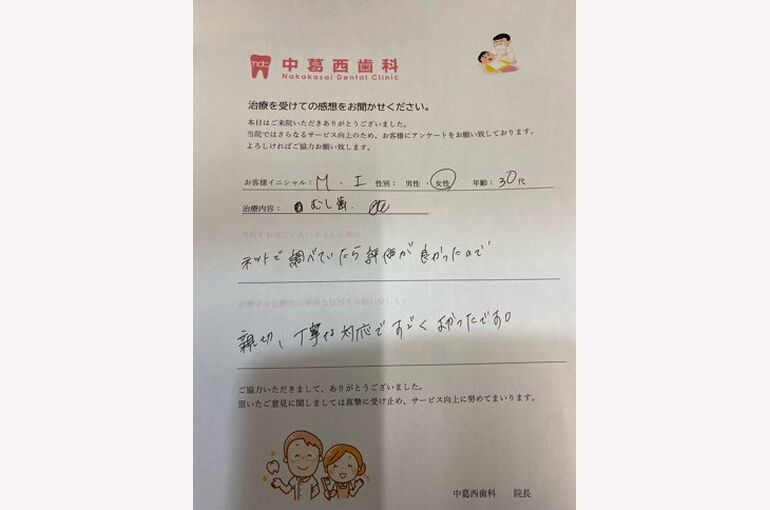 mdc 中葛西歯科
Nakakasai Dental Clinic
治療を受けての感想をお聞かせください。
本日はご来院いただきありがとうございました。
当院ではさらなるサービス向上のため、お客様にアンケートをお願い致しております。
よろしければご協力お願い致します。
お客様イニシャル： M . I 性別： 男性 ・ 女性 年齢： 30 代
治療内容： むし歯. etc
当院をお選びいただきました理由
ネットで調べていたら評価が良かったので
治療中や治療後の率直な感想をお願い致します
親切、丁寧な対応ですごくよかったです。
ご協力いただきまして、ありがとうございました。
頂いたご意見に関しましては真摯に受け止め、サービス向上に努めてまいります。
中葛西歯科 院長